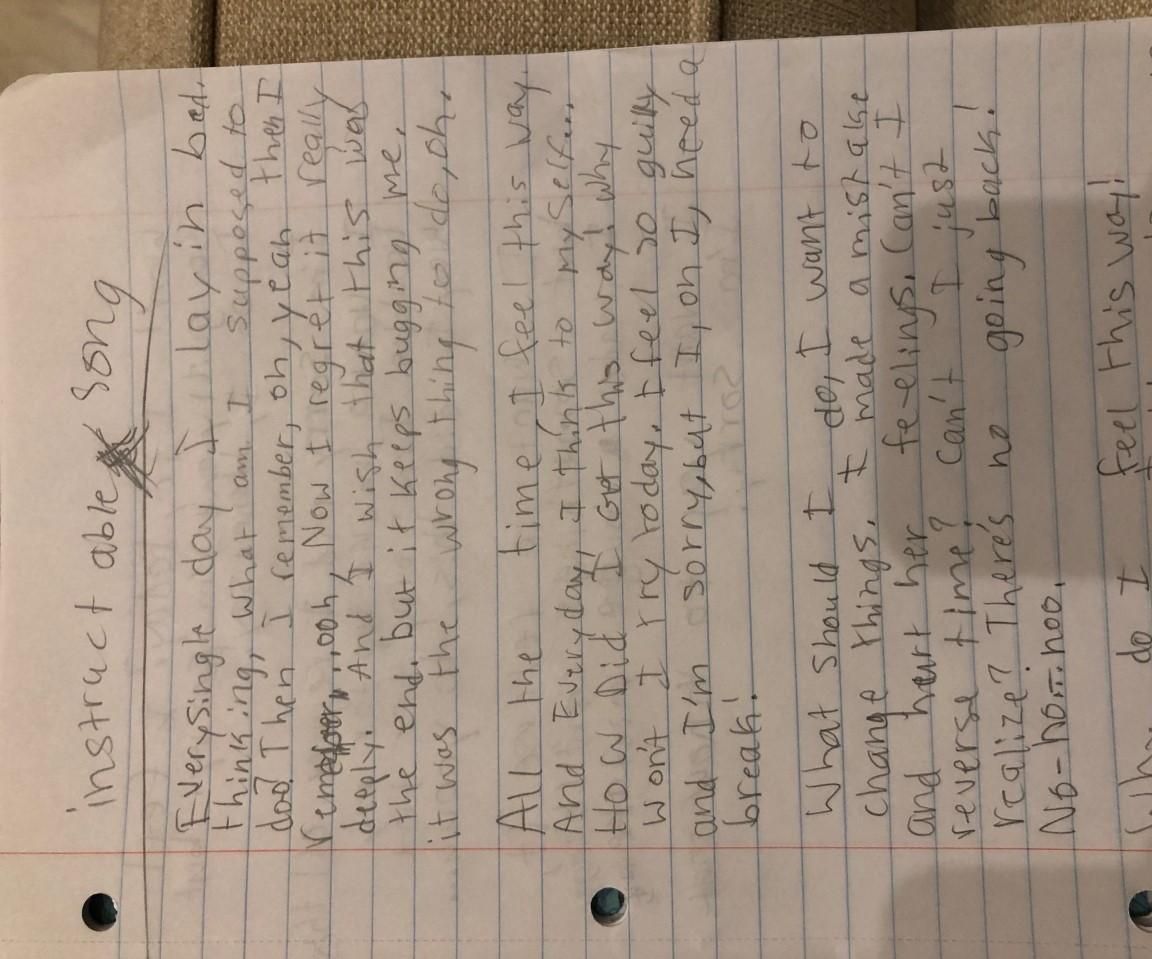 instruct able song
Every single day I lay in bed.
thinking, what am I supposed to
doo. Then I remember, oh, yeah then I
remember...ooh, Now I regret it really
deeply. And I wish that this was
the end. but it keeps bugging me.
it was the wrong thing to do, oh.
All the time I feel this way.
And Everyday, I think to myself...
How Did I Get this way! why
won't I try today. I feel so guilty
and I'm sorry, but I, oh I, need a
break!
What should I do, I want to
change things. I made a mistake
and hurt her fe-elings. Can't I
reverse time? can't I just
realize? There's no going back!
No-no...noo.
Why do I feel this way!